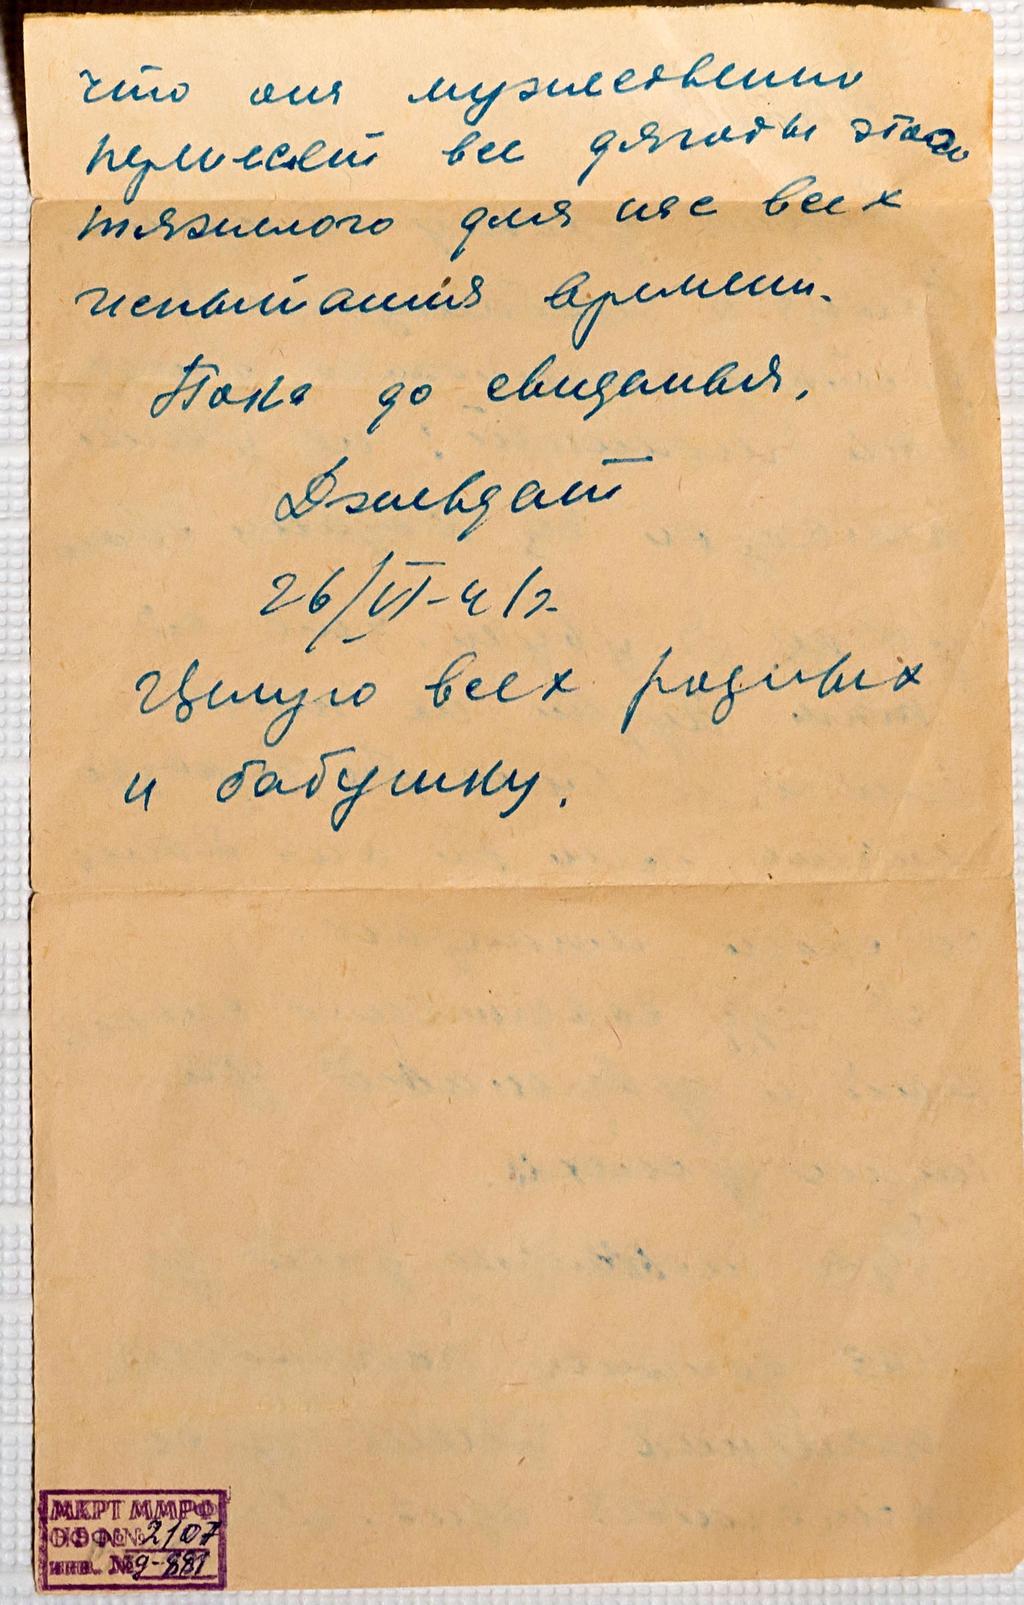 что она мужественно
перенесет все дягоды этого
тяжелого для нас всех
испытания времени.
Пока до свиданья,
Джевдат
26/VI-41г.
Целую всех родных
и бабушку.
МКРТ ММРФ
ОФ №2107
инв. №д-881